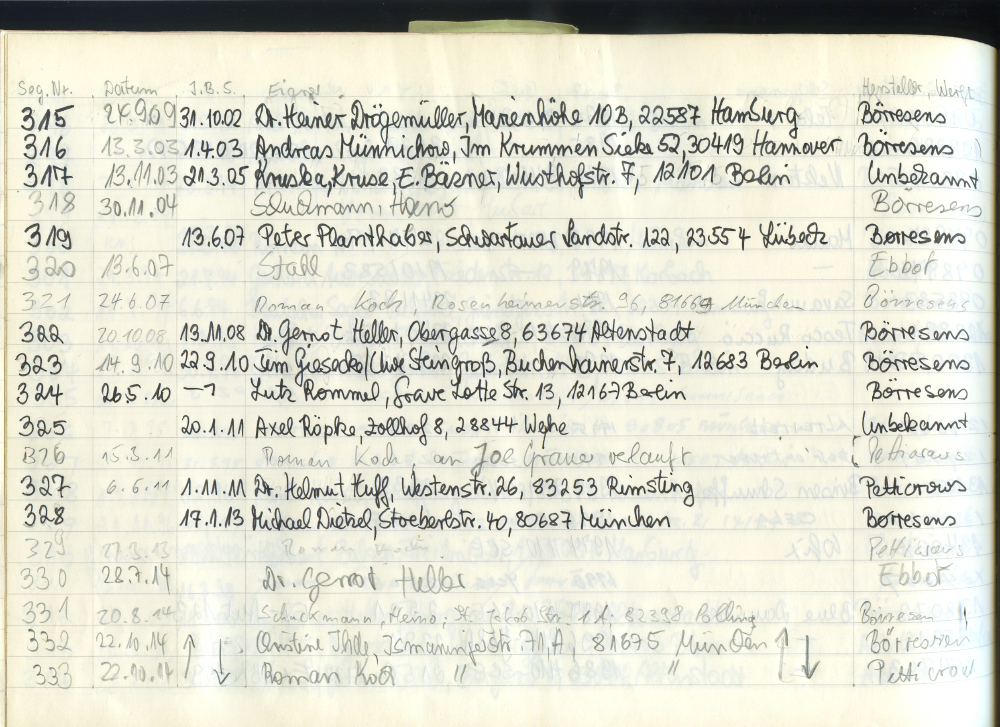 Seg.Nr. Datum J.B.S. Eigner Hersteller, Werft
315 24.9.09 31.10.02 Dr. Heiner Drögemüller, Marienhöhe 10B, 22587 Hamburg Börresens
316 13.3.03 1.4.03 Andreas Münnichow, Im Krummen Sieke 52, 30419 Hannover Börresens
317 13.11.03 21.3.05 Kruska, Kruse, E. Bäsner, Wusthofstr. 7, 12101 Berlin Unbekannt
318 30.11.04 Börresens
319 13.6.07 Peter Planthaber, Schwartauer Landstr. 122, 23554 Lübeck Börresens
320 13.6.07 Stahl Ebbot
321 24.6.07 Roman Koch, Rosenheimerstr. 96, 81669 München Börresens
322 20.10.08 13.11.08 Dr. Gernot Heller, Obergasse 8, 63674 Altenstadt Börresens
323 14.9.10 22.9.10 Tim Giesecke/Uwe Steingroß, Buchenhainerstr. 7, 12683 Berlin Börresens
324 26.5.10 —"— Lutz Rommel, Grave Lotte Str. 13, 12167 Berlin Börresens
325 20.1.11 Axel Röpke, Zollhof 8, 28844 Weyhe Unbekannt
326 15.3.11 Roman Koch, an Joe Grauer verkauft
327 6.6.11 1.11.11 Dr. Helmut Huff, Westenstr. 26, 83253 Rimsting Petticrows
328 17.1.13 Michael Dietzel, Stoeberlstr. 40, 80687 München Börresens
329 Roman
330 28.7.14 Dr. Gernot Heller Ebbot
331 20.8.14 Schuckmann, Heino, St. Jakob Str. 11, 82398 Polling Börresen !!
332 22.10.14 ↑ ↓ Christine 81675 München ↑ ↓ Börresen
333 22.10.14 Roman Koch " " Petticrow